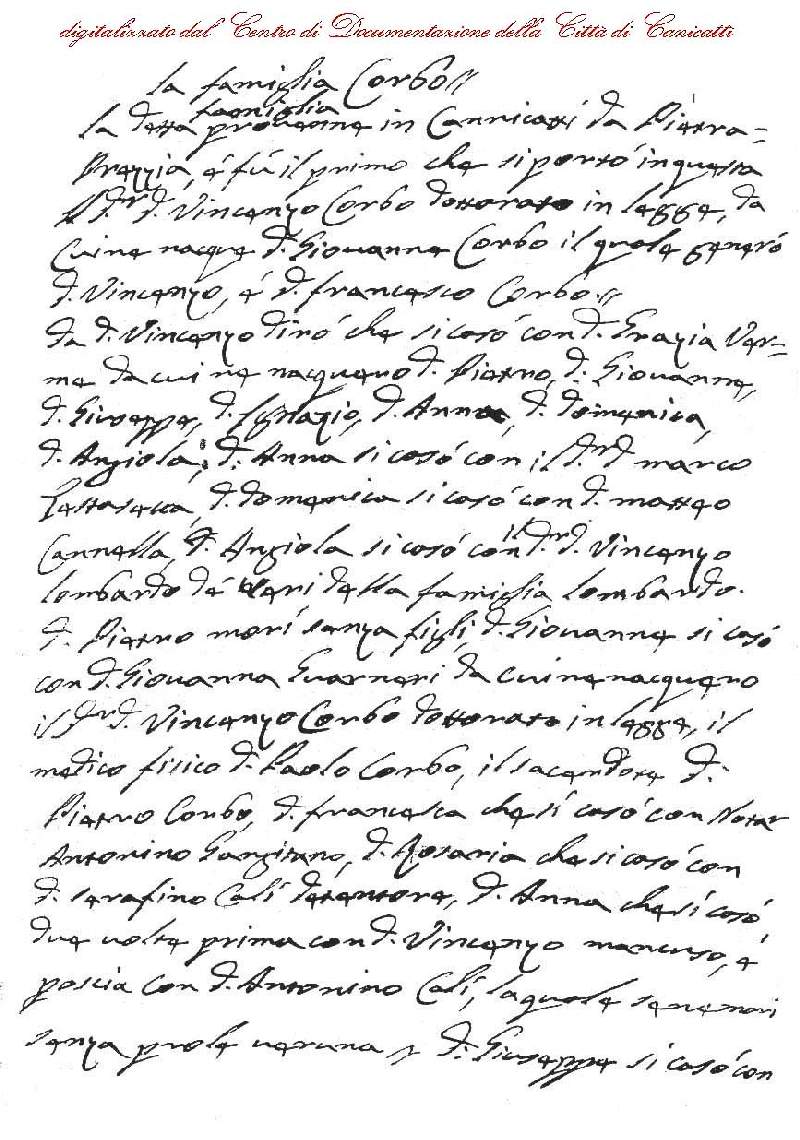 digitalizzato dal Centro di Documentazione della Città di Canicattì
la famiglia Corbo//
famiglia
la detta provenne in Cannicatti da Pietra=
Prezzia, é fú il primo che si portó in questa
il D.r D. Vincenzo Corbo dottorato in legge, da
Cui ne nacque D. Giovanne Corbo il quale generó
D. Vincenzo, é D. francesco Corbo//
da D. Vincenzo diró che si casó con D. Grazia Ver=
me da cui ne nacquero D. Pietro, D. Giovanne,
D. Giuseppe, D. Ignazio, D. Anna, D. Domenica,
D. Angiola; D. Anna si casó con il D.r D. marco
Testasecca, D. Domenica si casó con D. matteo
Cannella, D. Angiola si casó con il D.r D. Vincenzo
lombardo dé veri della famiglia lombardo.
D. Pietro morí senza figli, D. Giovanne si casó
con D. Giovanna Guarneri da cui ne nacquero
il D.r D. Vincenzo Corbo dottorato in legge, il
medico fisico D. Paolo Corbo, il sacerdote D.
Pietro Corbo, D. francesca che si casó con Notar
Antonino Gangitano, D. Rosaria che si casó con
D. serafino Calí detentore, D. Anna che si casó
due volte prima con D. Vincenzo mancuso, é
poscia con D. Antonino Calí, la quale se ne morí
senza prole veruna, D. Giuseppe si casó con